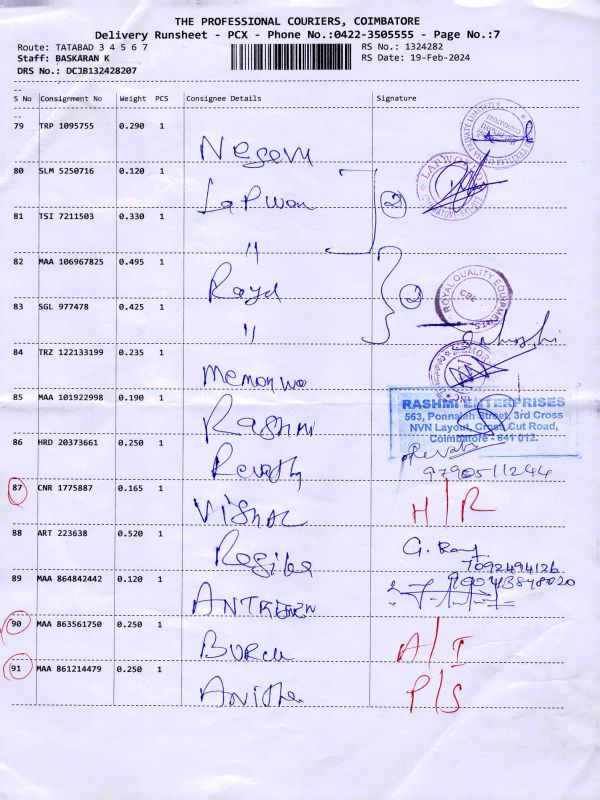 THE PROFESSIONAL COURIERS, COIMBATORE
Delivery Runsheet - PCX - Phone No.:0422-3505555 - Page No.:7
Route: TATABAD 3 4 5 6 7
RS No.: 1324282
Staff: BASKARAN K
RS Date: 19-Feb-2024
DRS No.: DCJB132428207
S No Consignment No Weight PCS Consignee Details Signature
79 TRP 1095755 0.290 1
80 SLM 5250716 0.120 1 Lapwon
81 TSI 7211503 0.330 1 "
2
82 MAA 106967825 0.495 1 Royal
ROYAL QUALITY EQUIPMENTS
CBE
83 SGL 977478 0.425 1 "
2
84 TRZ 122133199 0.235 1
85 MAA 101922998 0.190 1 Rashmi
RASHMI ENTERPRISES
563, Ponnaiah Street, 3rd Cross
NVN Layout, Cross Cut Road,
Coimbatore - 641 012.
86 HRD 20373661 0.250 1 Revathy
Revathi
9790511244
87 CNR 1775887 0.165 1 Vishal H/R
88 ART 223638 0.520 1
7092494126
89 MAA 864842442 0.120 1
90 MAA 863561750 0.250 1 A/I
91 MAA 861214479 0.250 1 Anitha P/S